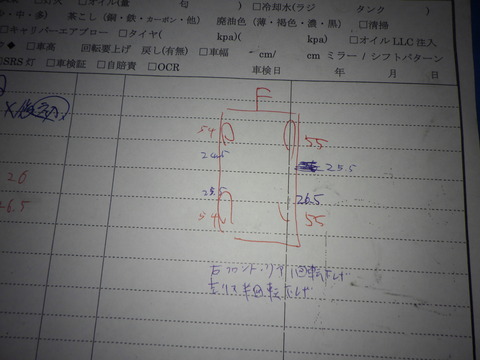 灯火 □オイル(量 ) □冷却水(ラジ タンク )
中・多) 茶こし (銅・鉄・カーボン・他) 廃油色 (薄・褐色・濃・黒) □清掃
□キャリパーエアブロー □タイヤ( kpa)( kpa) □オイル LLC 注入
◆ □車高 回転要上げ 戻し(有無) □車幅 - cm/ cm ミラー / シフトパターン
SRS 灯 □車検証 □自賠責 □OCR 車検日 年 月 日
F
54 55
24.5 25.5
26
25.5 26.5
26.5
54 55
右フロント・リヤ 1回転下げ
左リヤ半回転下げ